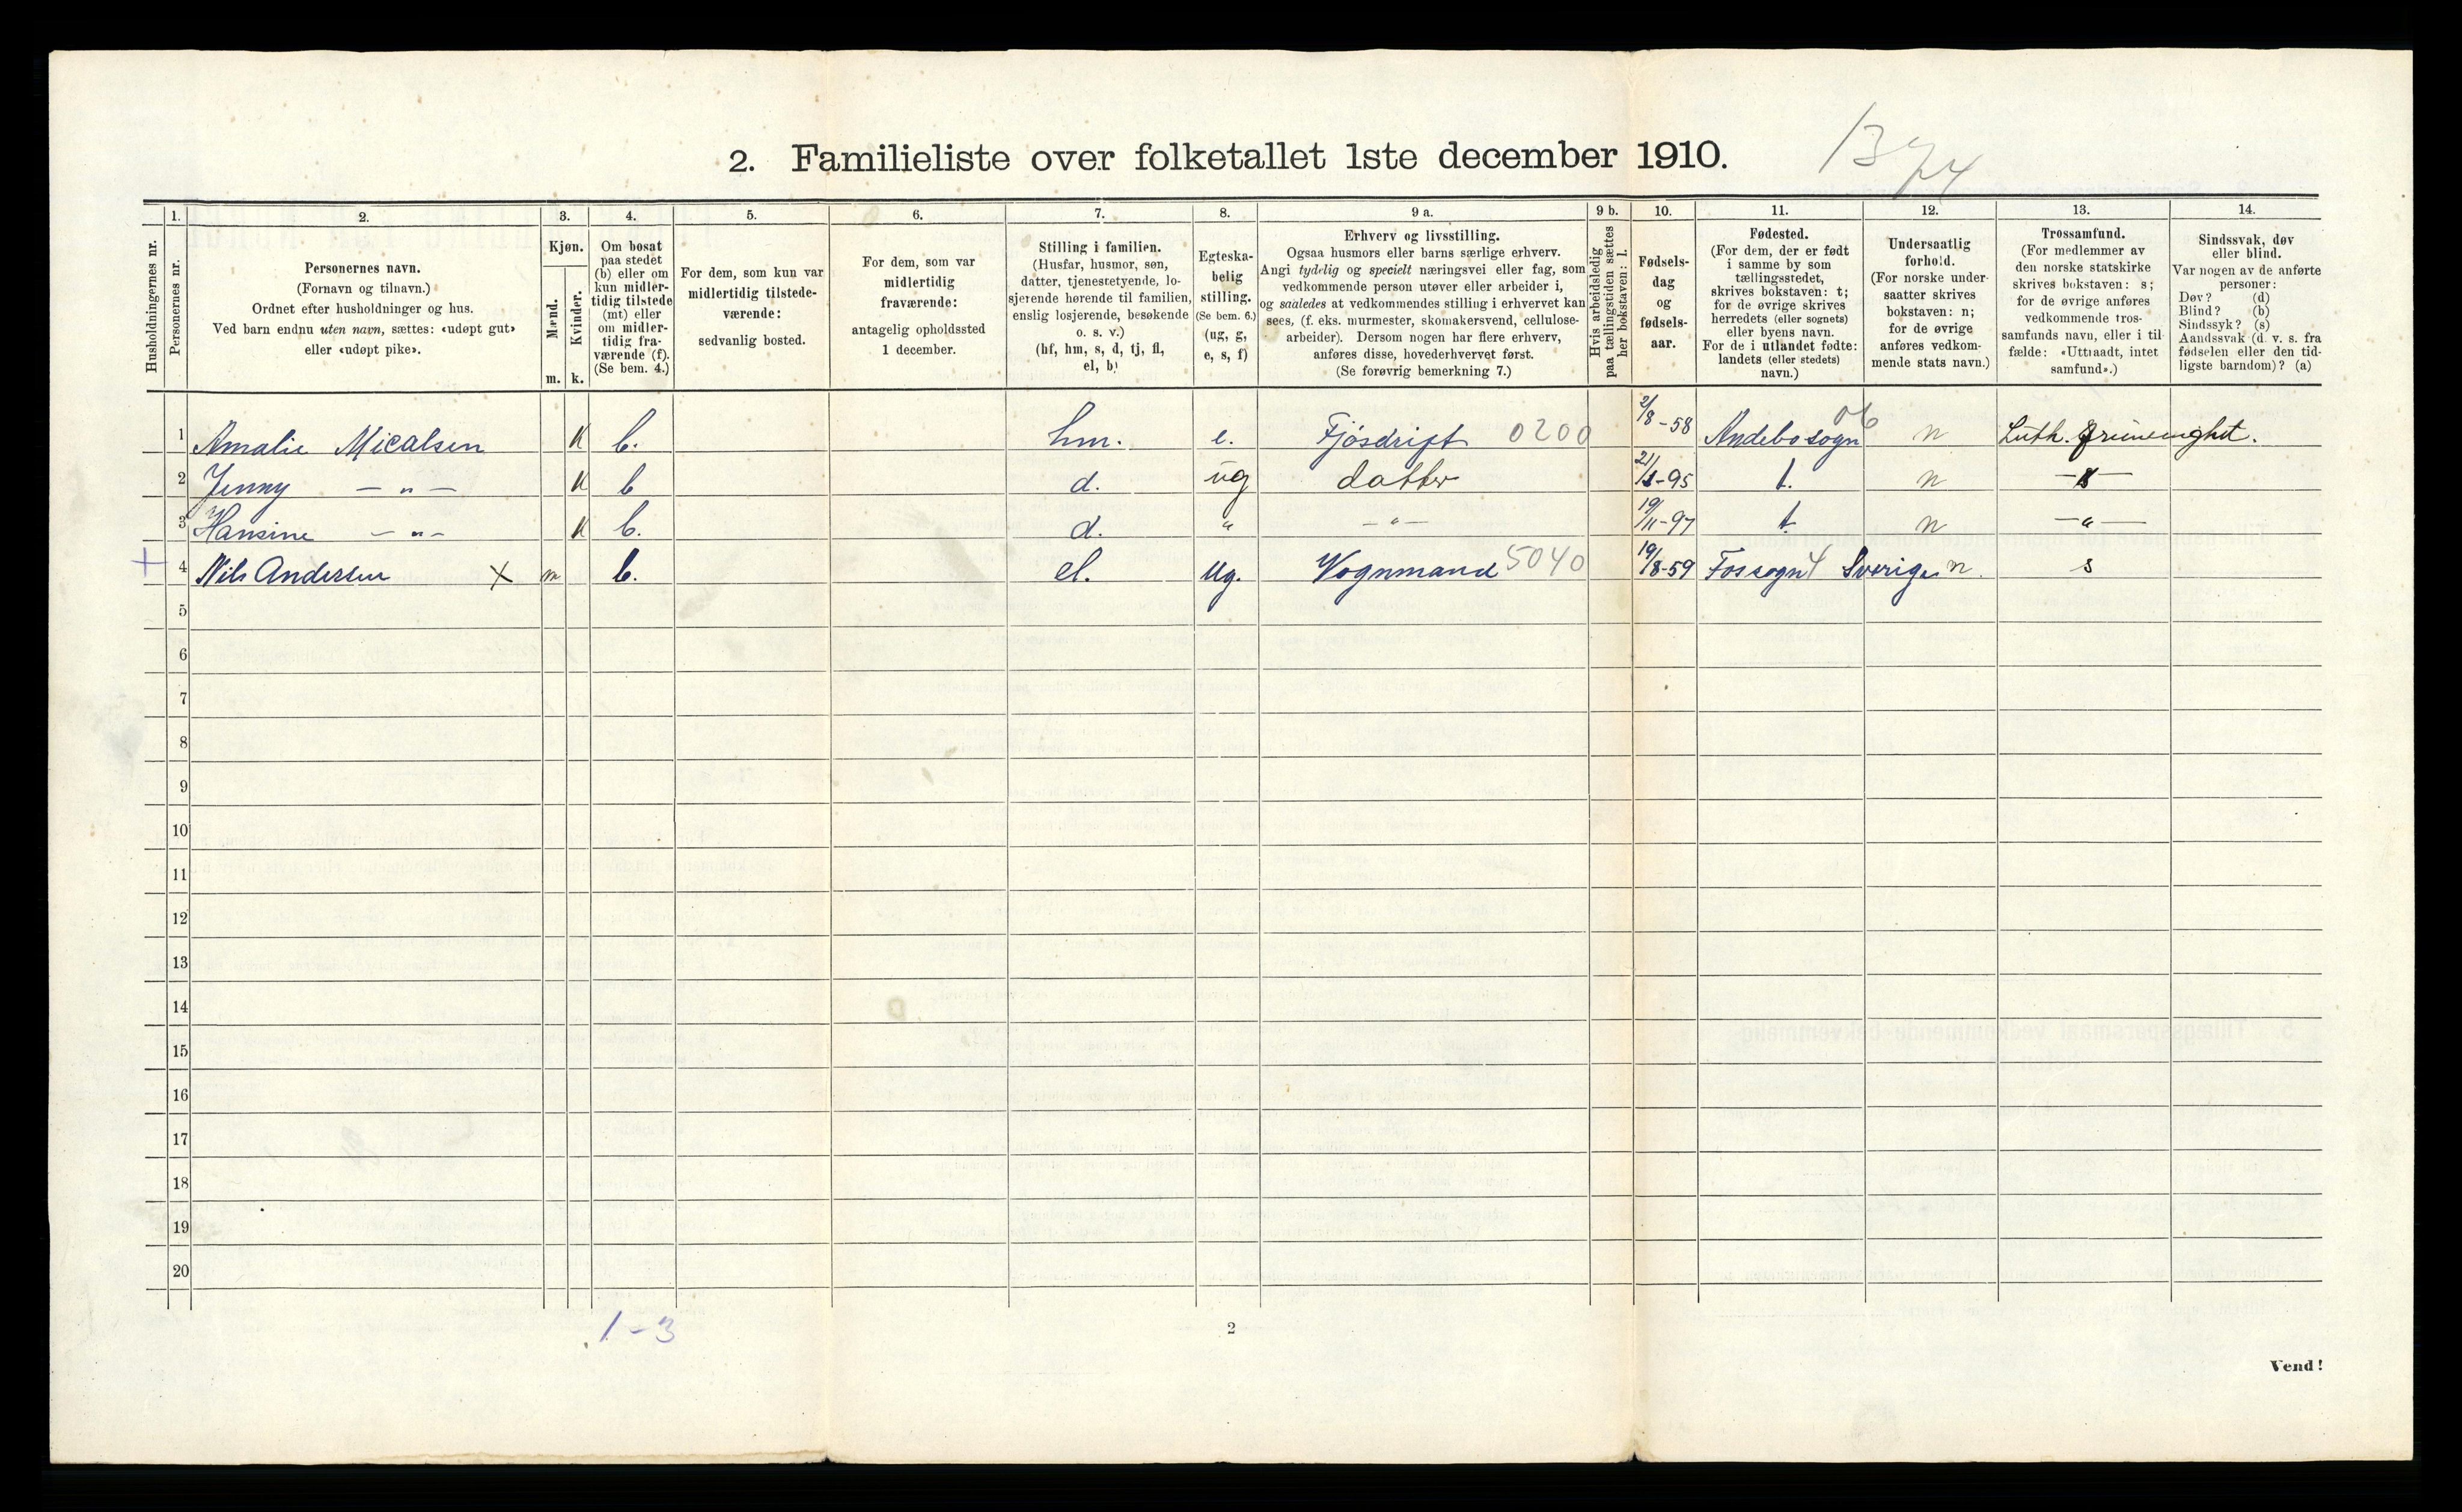 2. Familieliste over folketallet 1ste december 1910.
Husholdningernes nr.
1.
Personernes nr.
2.
Personernes navn.
(Fornavn og tilnavn.)
Ordnet efter husholdninger og hus.
Ved barn endnu uten navn, sættes: «udøpt gut»
eller «udøpt pike».
3.
Kjøn.
Mænd.
m.
Kvinder.
k.
4.
Om bosat
paa stedet
(b) eller om
kun midler-
tidig tilstede
(mt) eller
om midler-
tidig fra-
værende (f).
(Se bem. 4.)
5.
For dem, som kun var
midlertidig tilstede-
værende:
sedvanlig bosted.
6.
For dem, som var
midlertidig
fraværende:
antagelig opholdssted
1 december.
7.
Stilling i familien.
(Husfar, husmor, søn,
datter, tjenestetyende, lo-
sjerende hørende til familien,
enslig losjerende, besøkende
o. s. v.)
(hf, hm, s, d, tj, fl,
el, b)
8.
Egteska-
belig
stilling.
(Se bem. 6.)
(ug, g,
e, s, f)
9 a.
Erhverv og livsstilling.
Ogsaa husmors eller barns særlige erhverv.
Angi tydelig og specielt næringsvei eller fag, som
vedkommende person utøver eller arbeider i,
og saaledes at vedkommendes stilling i erhvervet kan
sees, (f. eks. murmester, skomakersvend, cellulose-
arbeider). Dersom nogen har flere erhverv,
anføres disse, hovederhvervet først.
(Se forøvrig bemerkning 7.)
9 b.
Hvis arbeidsledig
paa tællingstiden sættes
her bokstaven: l.
10.
Fødsels-
dag
og
fødsels-
aar.
11.
Fødested.
(For dem, der er født
i samme by som
tællingsstedet,
skrives bokstaven: t;
for de øvrige skrives
herredets (eller sognets)
eller byens navn.
For de i utlandet fødte:
landets (eller stedets)
navn.)
12.
Undersaatlig
forhold.
(For norske under-
saatter skrives
bokstaven: n;
for de øvrige
anføres vedkom-
mende stats navn.)
13.
Trossamfund.
(For medlemmer av
den norske statskirke
skrives bokstaven: s;
for de øvrige anføres
vedkommende tros-
samfunds navn, eller i til-
fælde: «Uttraadt, intet
samfund».)
14.
Sindssvak, døv
eller blind.
Var nogen av de anførte
personer:
Døv? (d)
Blind? (b)
Sindssyk? (s)
Aandssvak (d. v. s. fra
fødselen eller den tid-
ligste barndom)? (a)
1 Amalie Micalsen K b. hm. e. Fjósdrift 0200 2/8-58 Andebo sogn 06 n Luth.
2 Jenny —„— K b d. ug datter 95 t. n
3 Hansine —„— K b. d. „ —„— 19/11-97 t n —„—
+ 4 Nils Andersen X m b. el. ug. Vognmand 5040 19/8-59 Fossogn Sverige n. s
5
6
7
8
9
10
11
12
13
14
15
16
17
18
19
20
1-3
2
Vend!